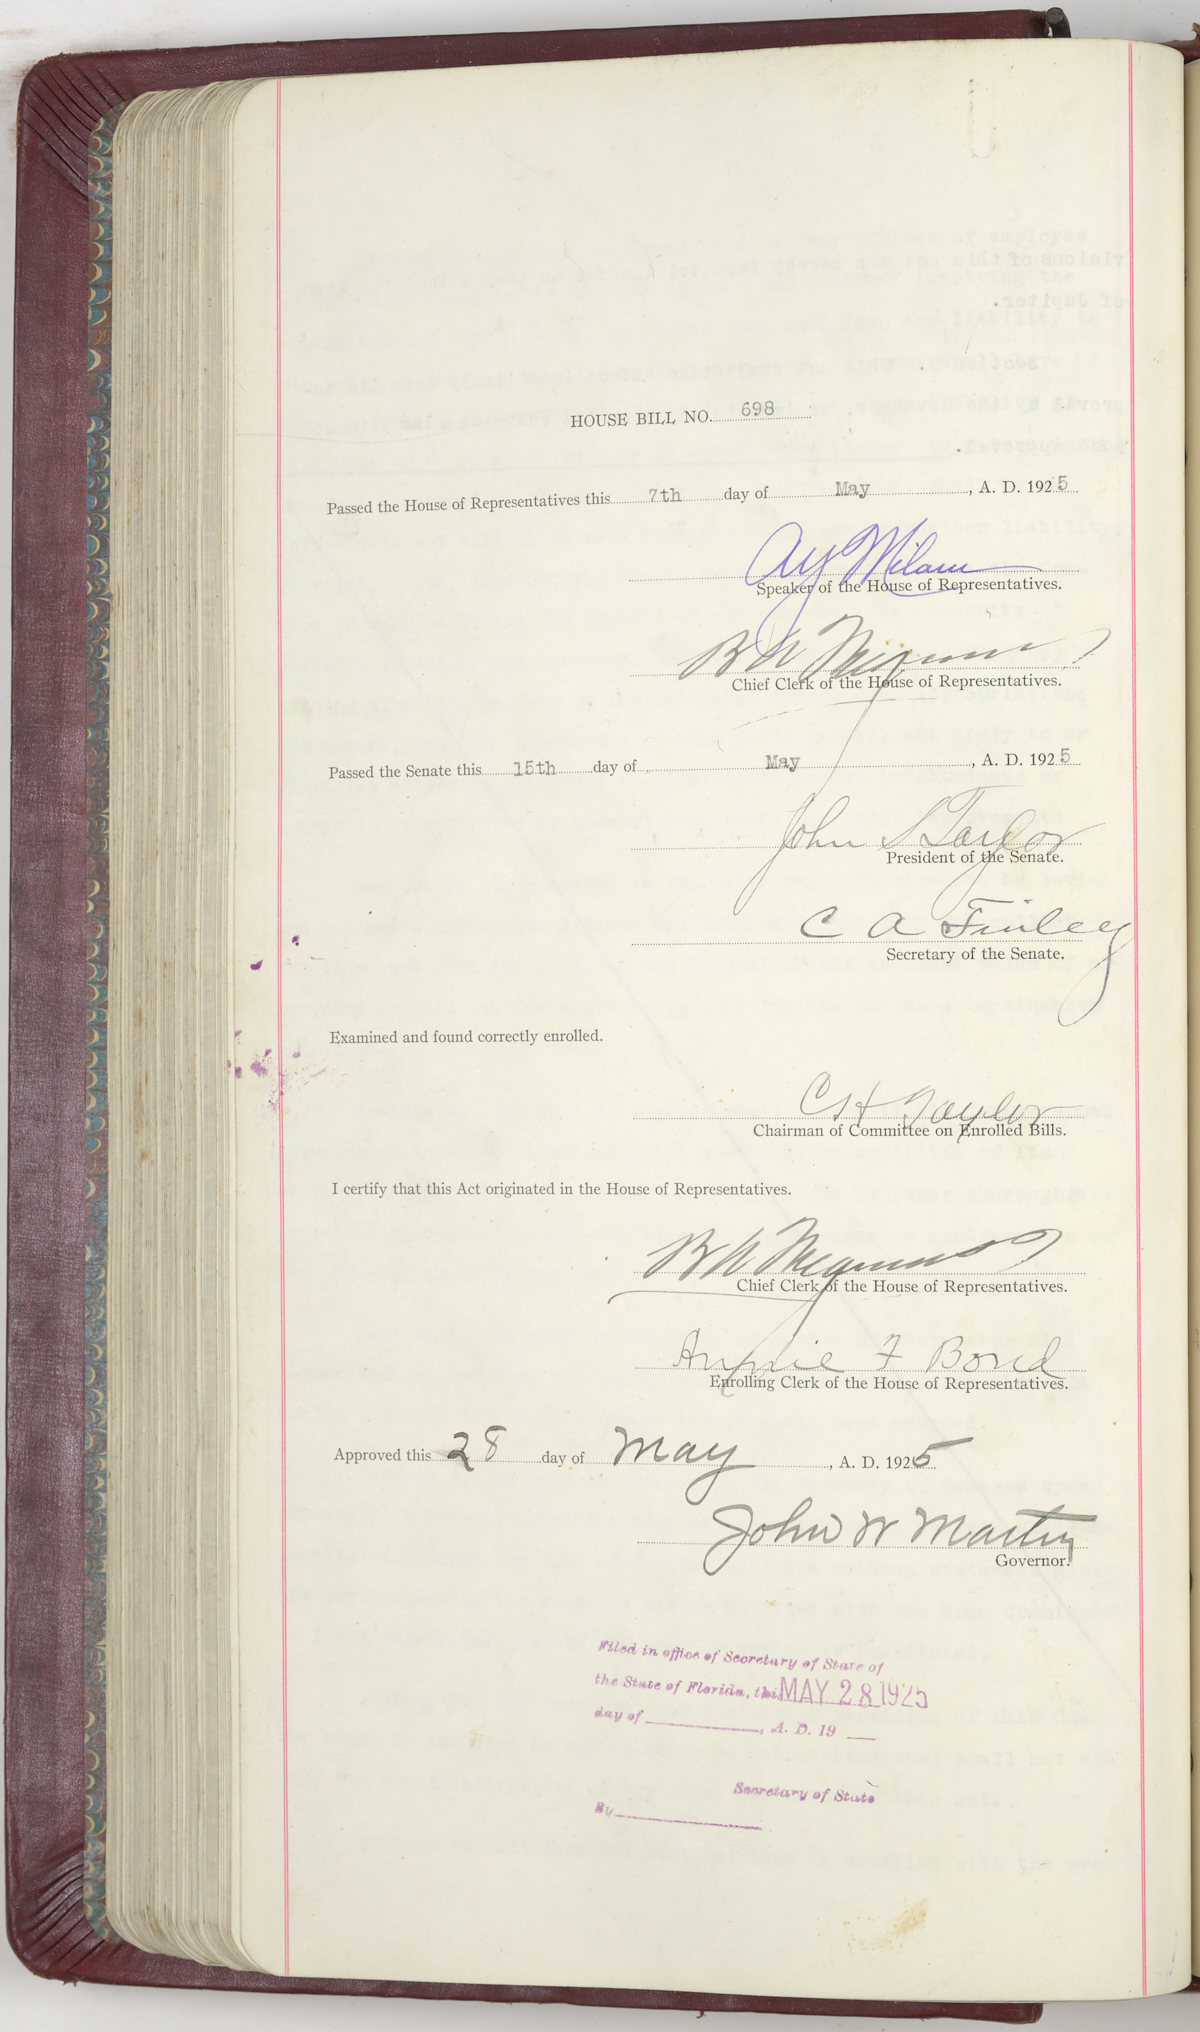 HOUSE BILL NO. 698
Passed the House of Representatives this 7th day of May, A. D. 1925
A Y Milam
Speaker of the House of Representatives.
Chief Clerk of the House of Representatives.
Passed the Senate this 15th day of May, A. D. 1925
John S Taylor
President of the Senate.
C A Finley
Secretary of the Senate.
Examined and found correctly enrolled.
C H Taylor
Chairman of Committee on Enrolled Bills.
I certify that this Act originated in the House of Representatives.
Chief Clerk of the House of Representatives.
Annie F Bond
Enrolling Clerk of the House of Representatives.
Approved this 28 day of May, A. D. 1925
John W Martin
Governor.
Filed in office of Secretary of State of
the State of Florida, this MAY 28 1925
day of ________, A. D. 19 __
Secretary of State
By________